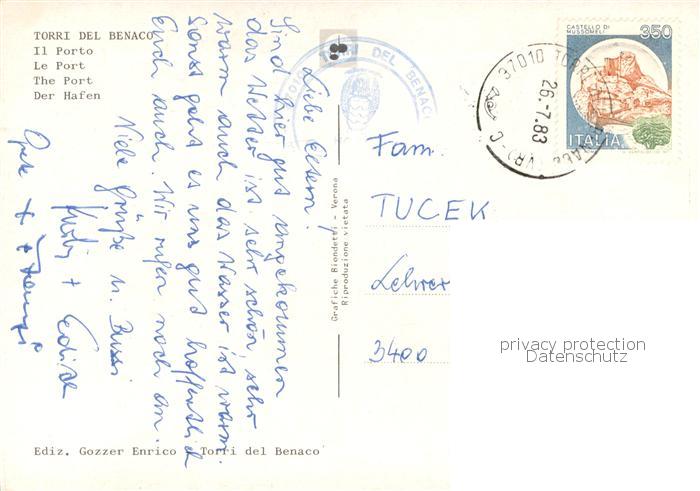 TORRI DEL BENACO
Il Porto
Le Port
The Port
Der Hafen
Liebe Eltern!
Sind hier gut angekommen
das Wetter ist sehr schön, sehr
warm auch das Wasser ist warm.
Sonst geht es uns gut hoffentlich
Euch auch. Wir rufen noch an.
Viele Grüße u. Bussi
+ Edith
+
Ediz. Gozzer Enrico - Torri del Benaco
Grafiche Biondetti - Verona
Riproduzione vietata
TORRI DEL BENACO
CASTELLO DI
MUSSOMELI
350
ITALIA
37010 TORRI
26.7.83
(VR)-C
Fam.
TUCEK
Lehrer
3400
privacy protection
Datenschutz